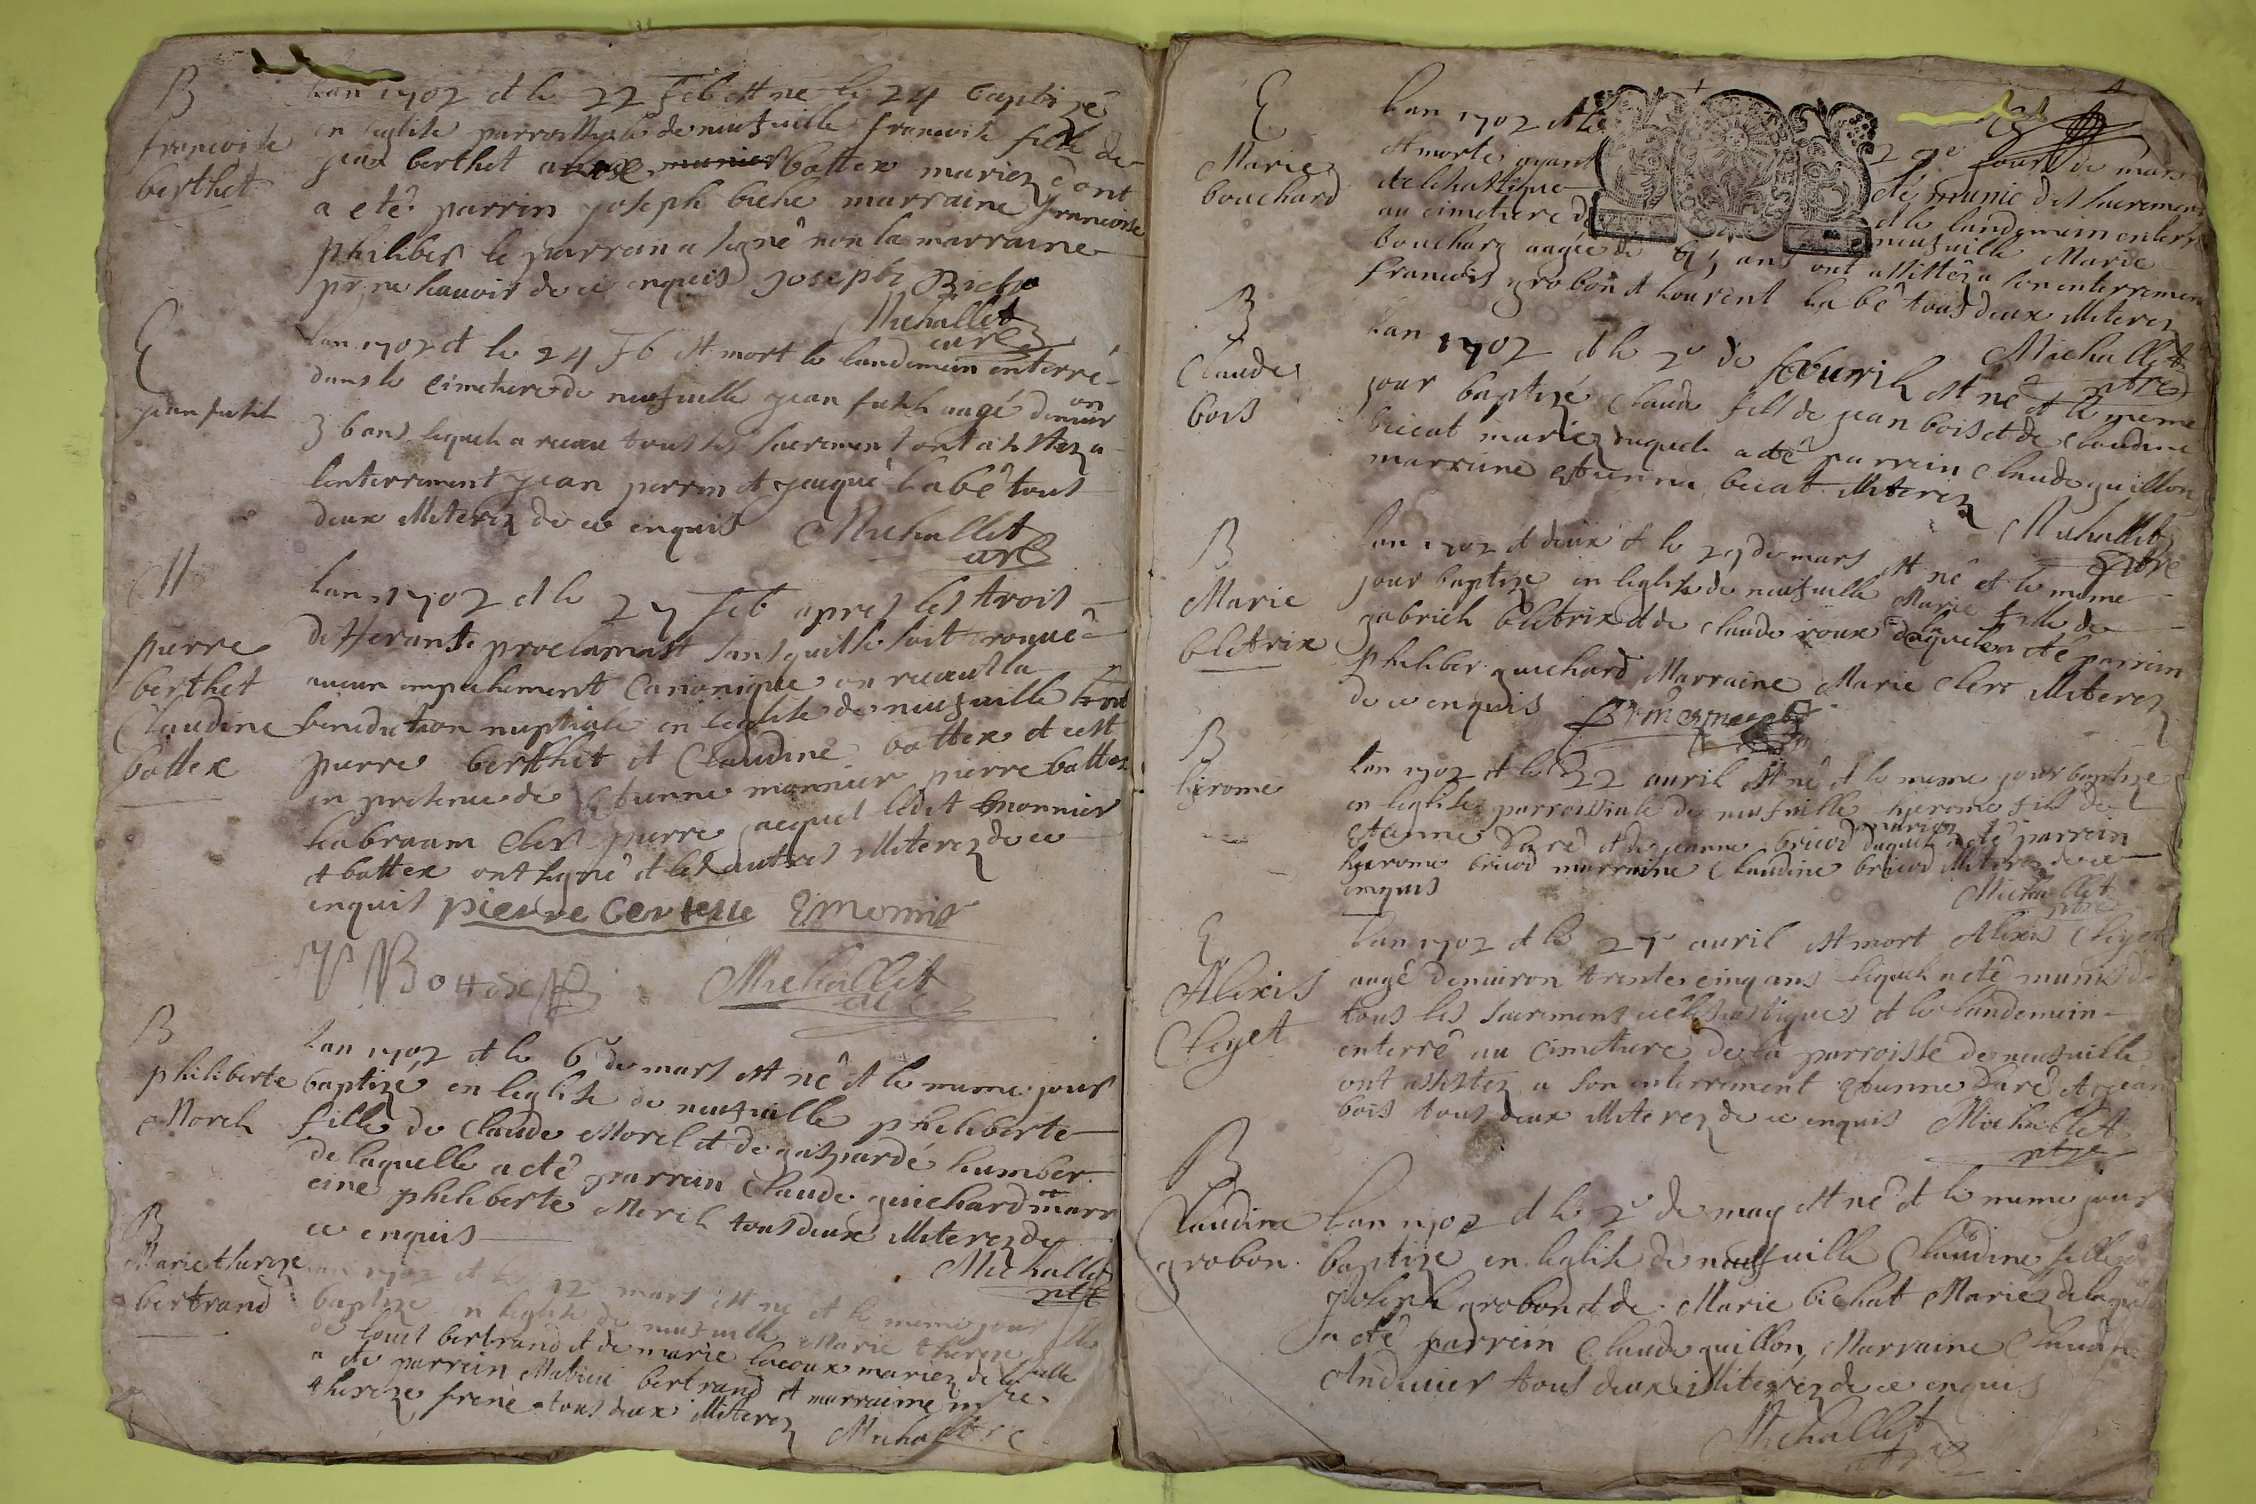 B
francoise
berthet
Lan 1702 et le 22 Feb est ne le 24 baptizé
en leglise parroissiale de neufuille francoise fille de
jean berthet battex mariez dont
a eté parrin joseph biche marraine francoise
philiber le parrain a signé non la marraine
pr ne scauoir de ce enquis joseph Biche
Michallet
curé
E
jean futil
Lan 1702 et le 24 Fb est mort le landemain enterré
dans le cimetiere de neufuille jean futil aagé denuiron
36 ans lequel a receu tous les sacrement ont assistez a
lenterrement jean perrin et jacque labé tous
deux illiterez de ce enquis Michallet
curé
M
pierre
berthet
Claudine
battex
Lan 1702 et le 27 Feb apres les trois
differante proclamast sans quille soit
aucun empechement Canonique on receust la
benediction nuptiale en leglise de neufuille
pierre berthet et Claudine battex et cest
en presence de Etienne monnier pierre battex
habraam Clerc pierre jacquet ledit monnier
et battex ont signé et les autres illiterez de ce
enquis pierre berthet E monnier
P Battex
Michallet
curé
B
philiberte
Morel
Lan 1702 et le 6e de mars est né et le meme jour
baptizé en leglise de neufuille philiberte
fille de Claude Morel et de gaspardé humber
de laquelle a eté parrain Claude guichard marr
eine philiberte Morel tous deux illiterez de
ce enquis
Michallet
ptre
B
Marie thereze
bertrand
Lan 1702 et le 12 mars est ne et le meme jour
baptize en leglise de neufuille Marie thereze fille
de Louis bertrand et de marie lacoux mariez de laquelle
a ete parrein Mathieu bertrand et marraine
thereze frene tous deux illiterez
Michallet
E
Marie
bouchard
Lan 1702 et le 2 de jour de mars
est morte ayant eté munie des sacremens
eclesiastique et le landemain enterré
au cimetiere de neufuille Marie
bouchard aagée de ans ont assistéz a son enterrement
francois grobon et Lourent Labé tous deux illiterez
Michallet
ptre
B
Claude
bois
Lan 1702 et le 2e de feburil est né et le meme
jour baptizé Claude fils de jean bois et de Claudine
biccat mariez duquel a eté parrein Claude guillon
marreine etienna biccat illiterez
Michallet
ptre
B
Marie
bletrix
Lan 1702 et deux et le 27 de mars est né et le meme
jour baptize en leglise de neufuille Marie fille de
gabriel bletrix et de claude roux de laquelle a eté parrein
philiber guichard Marraine Marie Clerc illiterez
de ce enquis
B
hierome
Lan 1702 et le 22 auril est né et le meme jour baptize
en leglise parroissiale de neufuille hierome fils de
Etienne Dare et de jeanne bricod mariez duquel a eté parrein
hierome bricod marraine Claudine bricod illiterez de ce
enquis
Michallet
ptre
E
Alexis
Cleyet
Lan 1702 et le 27 auril est mort Alexis Cleyet
aagé denuiron trente cinq ans lequel a eté munis de
tous les sacremens ecclesiastiques et le landemain
enterré au cimetiere de la parroisse de neufuille
ont assistez a son enterrement Etienne Dare et jean
bois tous deux illiterez de ce enquis Michallet
ptre
B
Claudine
grobon
Lan 1702 et le 2e de may est né et le meme jour
baptize en leglise de neufuille Claudine fille de
joseph grobon et de Marie bichat Mariez de laquelle
a eté parrein Claude guillon, Marraine Claudine
Andruier tous deux illiterez de ce enquis
Michallet
ptre